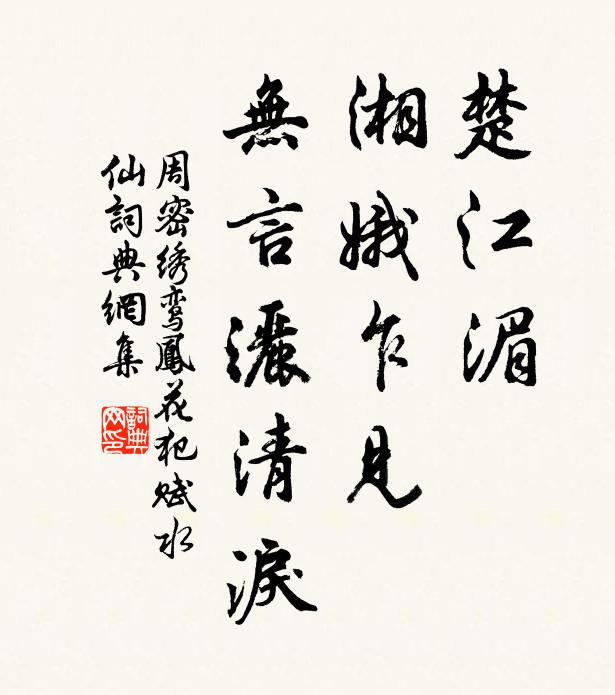 楚江湄
湘娥乍見
無言灑清淚
周密绣鸾鳳花犯赋水
仙詞典網集
詞典網印